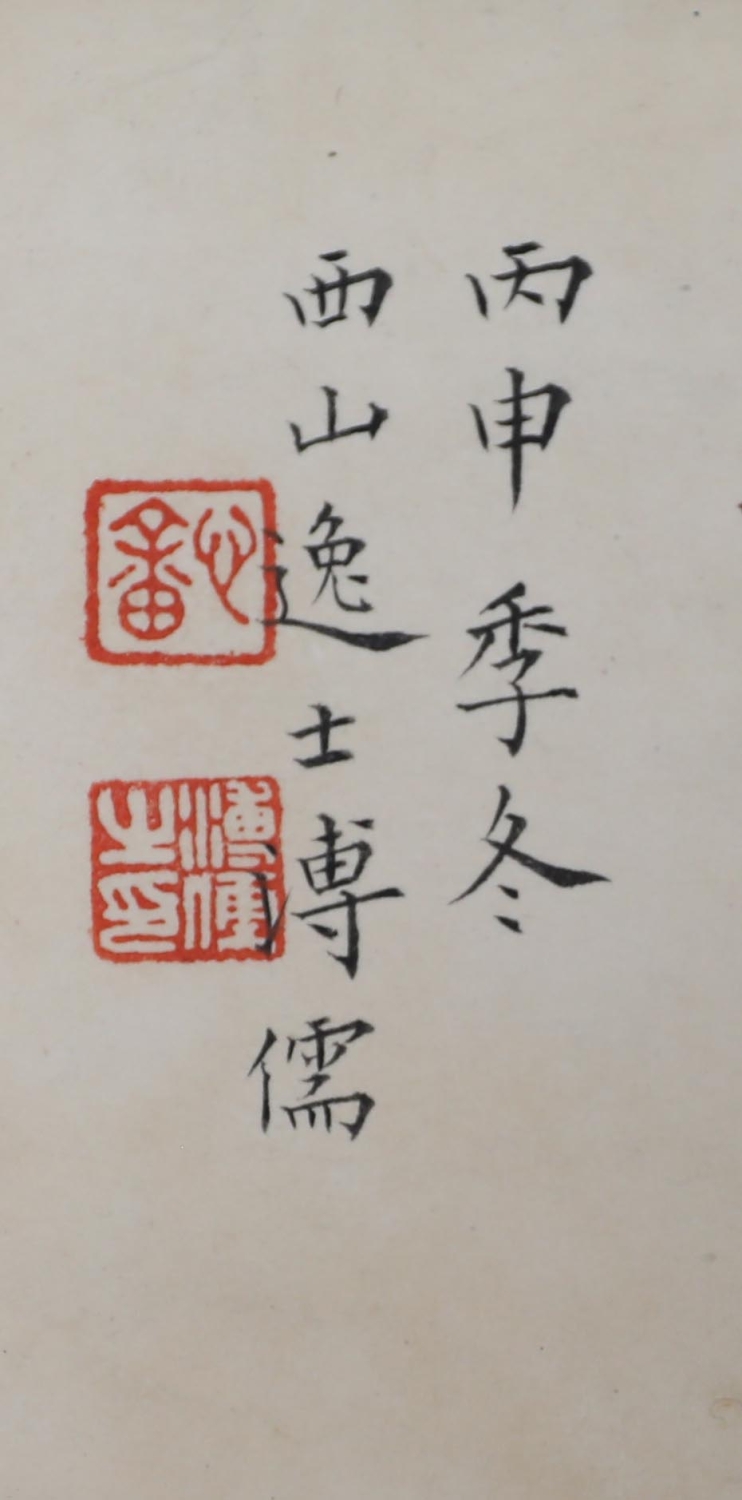 丙申季冬
西山逸士溥儒
心畬
溥儒之印